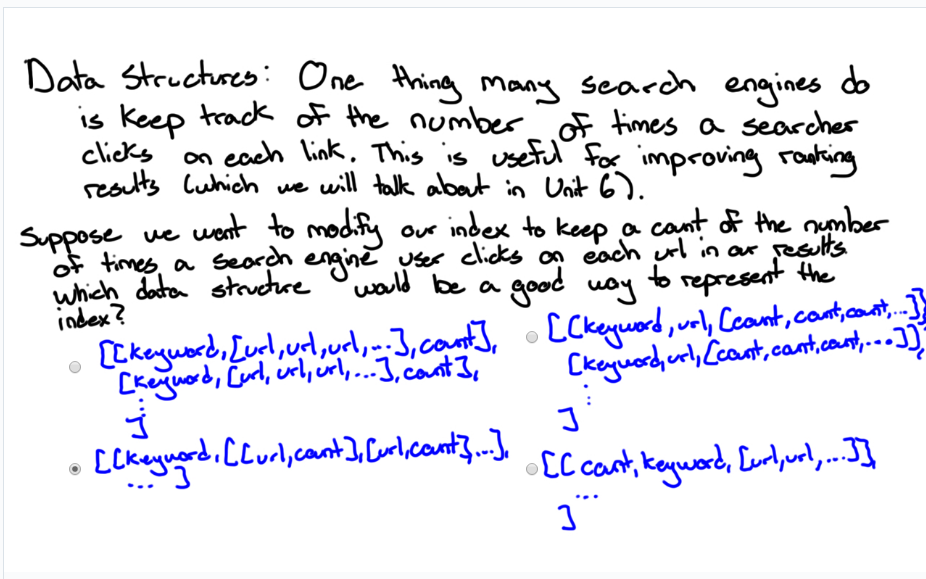 Data Structures: One thing many search engines do
is keep track of the number of times a searcher
clicks on each link. This is useful for improving ranking
results (which we will talk about in Unit 6).
Suppose we want to modify our index to keep a count of the number
of times a search engine user clicks on each url in our results.
Which data structure would be a good way to represent the
index?
[[keyword,[url,url,url,...],count],
[keyword,[url,url,url,...],count],
⋮
]
[[keyword,url,[count,count,count,...]],
[keyword,url,[count,count,count,...]],
⋮
]
[[keyword,[[url,count],[url,count],...],
... ]
[[count,keyword,[url,url,...]],
...
]